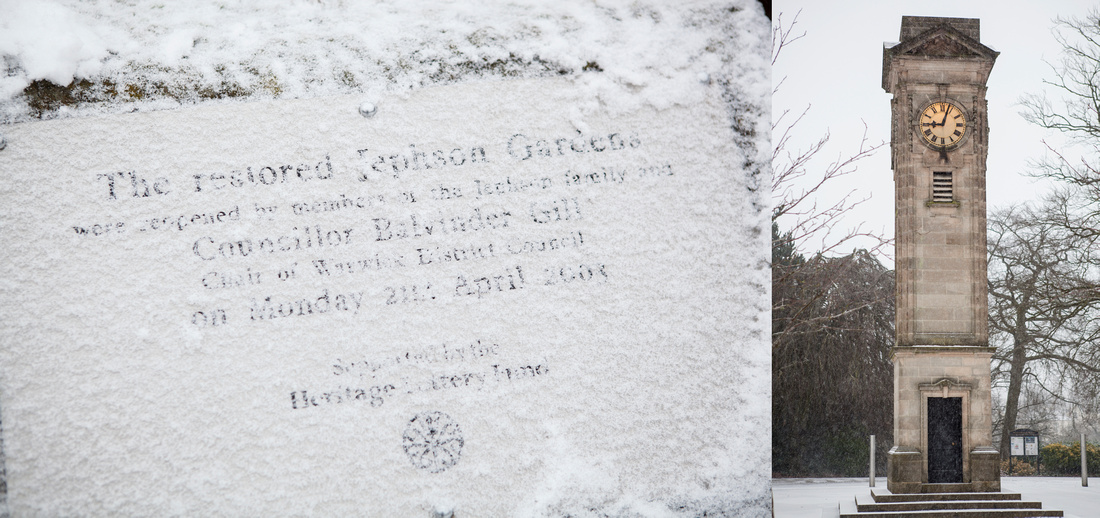 The restored Jephson Gardens
were reopened by members of the Jephson family and
Councillor Balvinder Gill
Chair of Warwick District Council
on Monday 21st April 2003
Supported by the
Heritage Lottery Fund